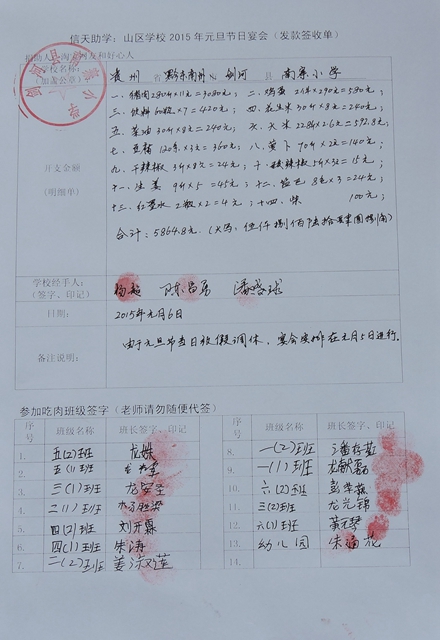 信天助学：山区学校2015年元旦节日宴会（发款签收单）
捐助人：淘宝网友和好心人
学校名称：
（加盖公章）
贵州 省 黔东南州 剑河 县 南寨小学
开支金额
（明细单）
一、猪肉280斤×11元=3080元； 二、鸡蛋 2件×290元=580元；
三、饮料60瓶×7=420元； 四、花生米30斤×8元=240元；
五、菜油30斤×8元=240元； 六、大米228斤×2.6元=592.8元
七、豆腐120斤×3元=360元； 八、萝卜 70斤×2元=140元；
九、干辣椒 3斤×8元=24元； 十、酸辣椒5斤×3元=15元；
十一、生姜 9斤×5=45元； 十二、盐巴 8包×3=24元；
十三、红墨水 2瓶×2=4元； 十四、柴 100元；
合计：5864.8元
学校经手人：
（签字、印记）
杨超 陈昌勇 潘盛球
日期：
2015年元月6日
备注说明：
由于元旦节当日放假调休，宴会安排在元月5日进行。
参加吃肉班级签字（老师请勿随便代签）
序号 班级名称 班长签字、印记 序号 班级名称 班长签字、印记
1. 五(2)班 龙姝 8. 一(2)班
2. 五(1)班 龙 9. 一(1)班 龙
3. 三(1)班 龙安圣 10. 六(2)班 彭
4. 二(1)班 11. 三(2)班 龙光锦
5. 四(2)班 刘开霖 12. 六(1)班
6. 四(1)班 朱涛 13. 幼儿园 朱
7. 二(2)班 姜淑莲 14.